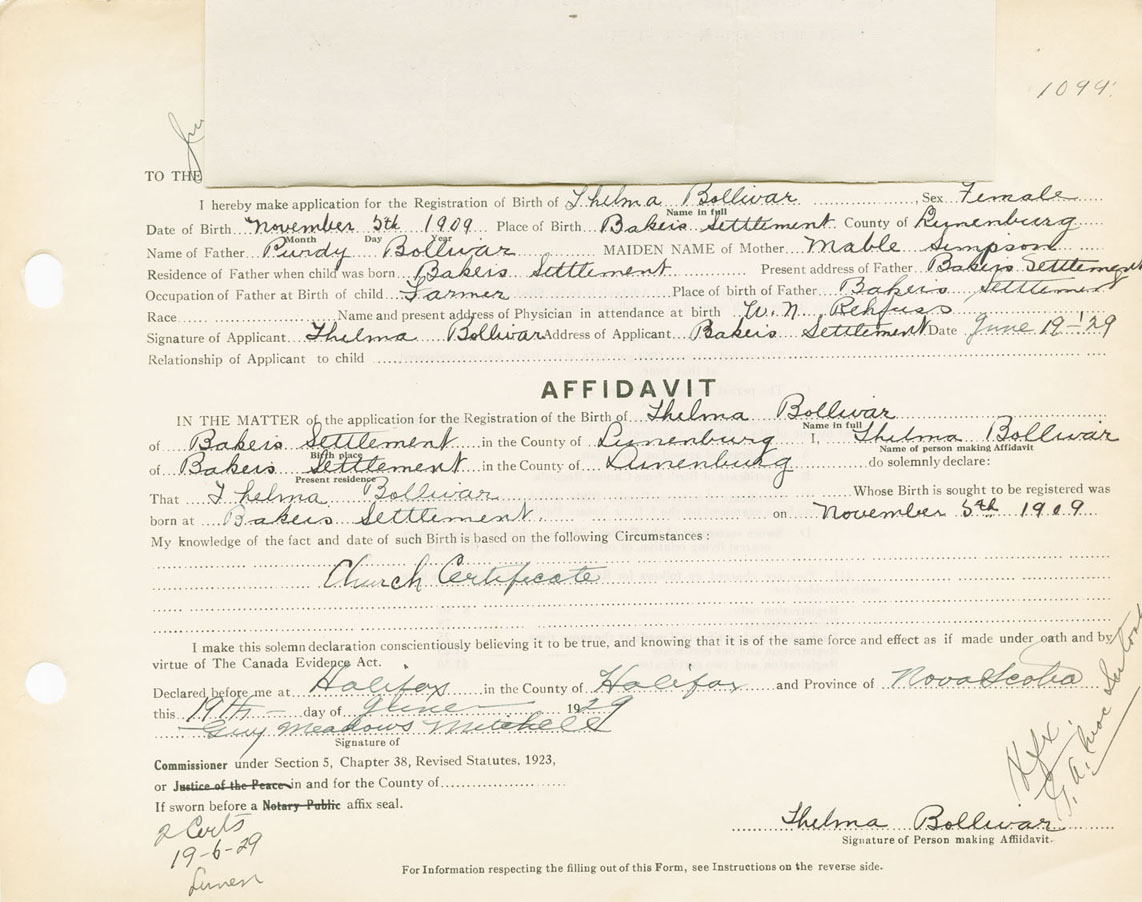 1099.
TO THE
I hereby make application for the Registration of Birth of Thelma Bollivar Sex Female
Name in full
Date of Birth November 5th 1909 Place of Birth Bakers Settlement County of Lunenburg
Month Day Year
Name of Father Purdy Bollivar MAIDEN NAME of Mother Mable Simpson
Residence of Father when child was born Bakers Settlement Present address of Father Bakers Settlement
Occupation of Father at Birth of child Farmer Place of birth of Father Bakers Settlement
Race Name and present address of Physician in attendance at birth W. N. Rehfuss
Signature of Applicant Thelma Bollivar Address of Applicant Bakers Settlement Date June 19-'29
Relationship of Applicant to child
AFFIDAVIT
IN THE MATTER of the application for the Registration of the Birth of Thelma Bollivar
Name in full
of Bakers Settlement in the County of Lunenburg I, Thelma Bollivar
Birth place Name of person making Affidavit
of Bakers Settlement in the County of Lunenburg do solemnly declare:
Present residence
That Thelma Bollivar Whose Birth is sought to be registered was
born at Bakers Settlement. on November 5th 1909
My knowledge of the fact and date of such Birth is based on the following Circumstances:
Church Certificate
I make this solemn declaration conscientiously believing it to be true, and knowing that it is of the same force and effect as if made under oath and by
virtue of The Canada Evidence Act.
Declared before me at Halifax in the County of Halifax and Province of Nova Scotia
this 19th - day of June 1929
Guy Meadows Mitchell
Signature of
Commissioner under Section 5, Chapter 38, Revised Statutes, 1923,
or Justice of the Peace in and for the County of
If sworn before a Notary Public affix seal.
2 Certs
19-6-29
Lunen
Hfx.
Thelma Bollivar
Signature of Person making Affidavit.
For Information respecting the filling out of this Form, see Instructions on the reverse side.